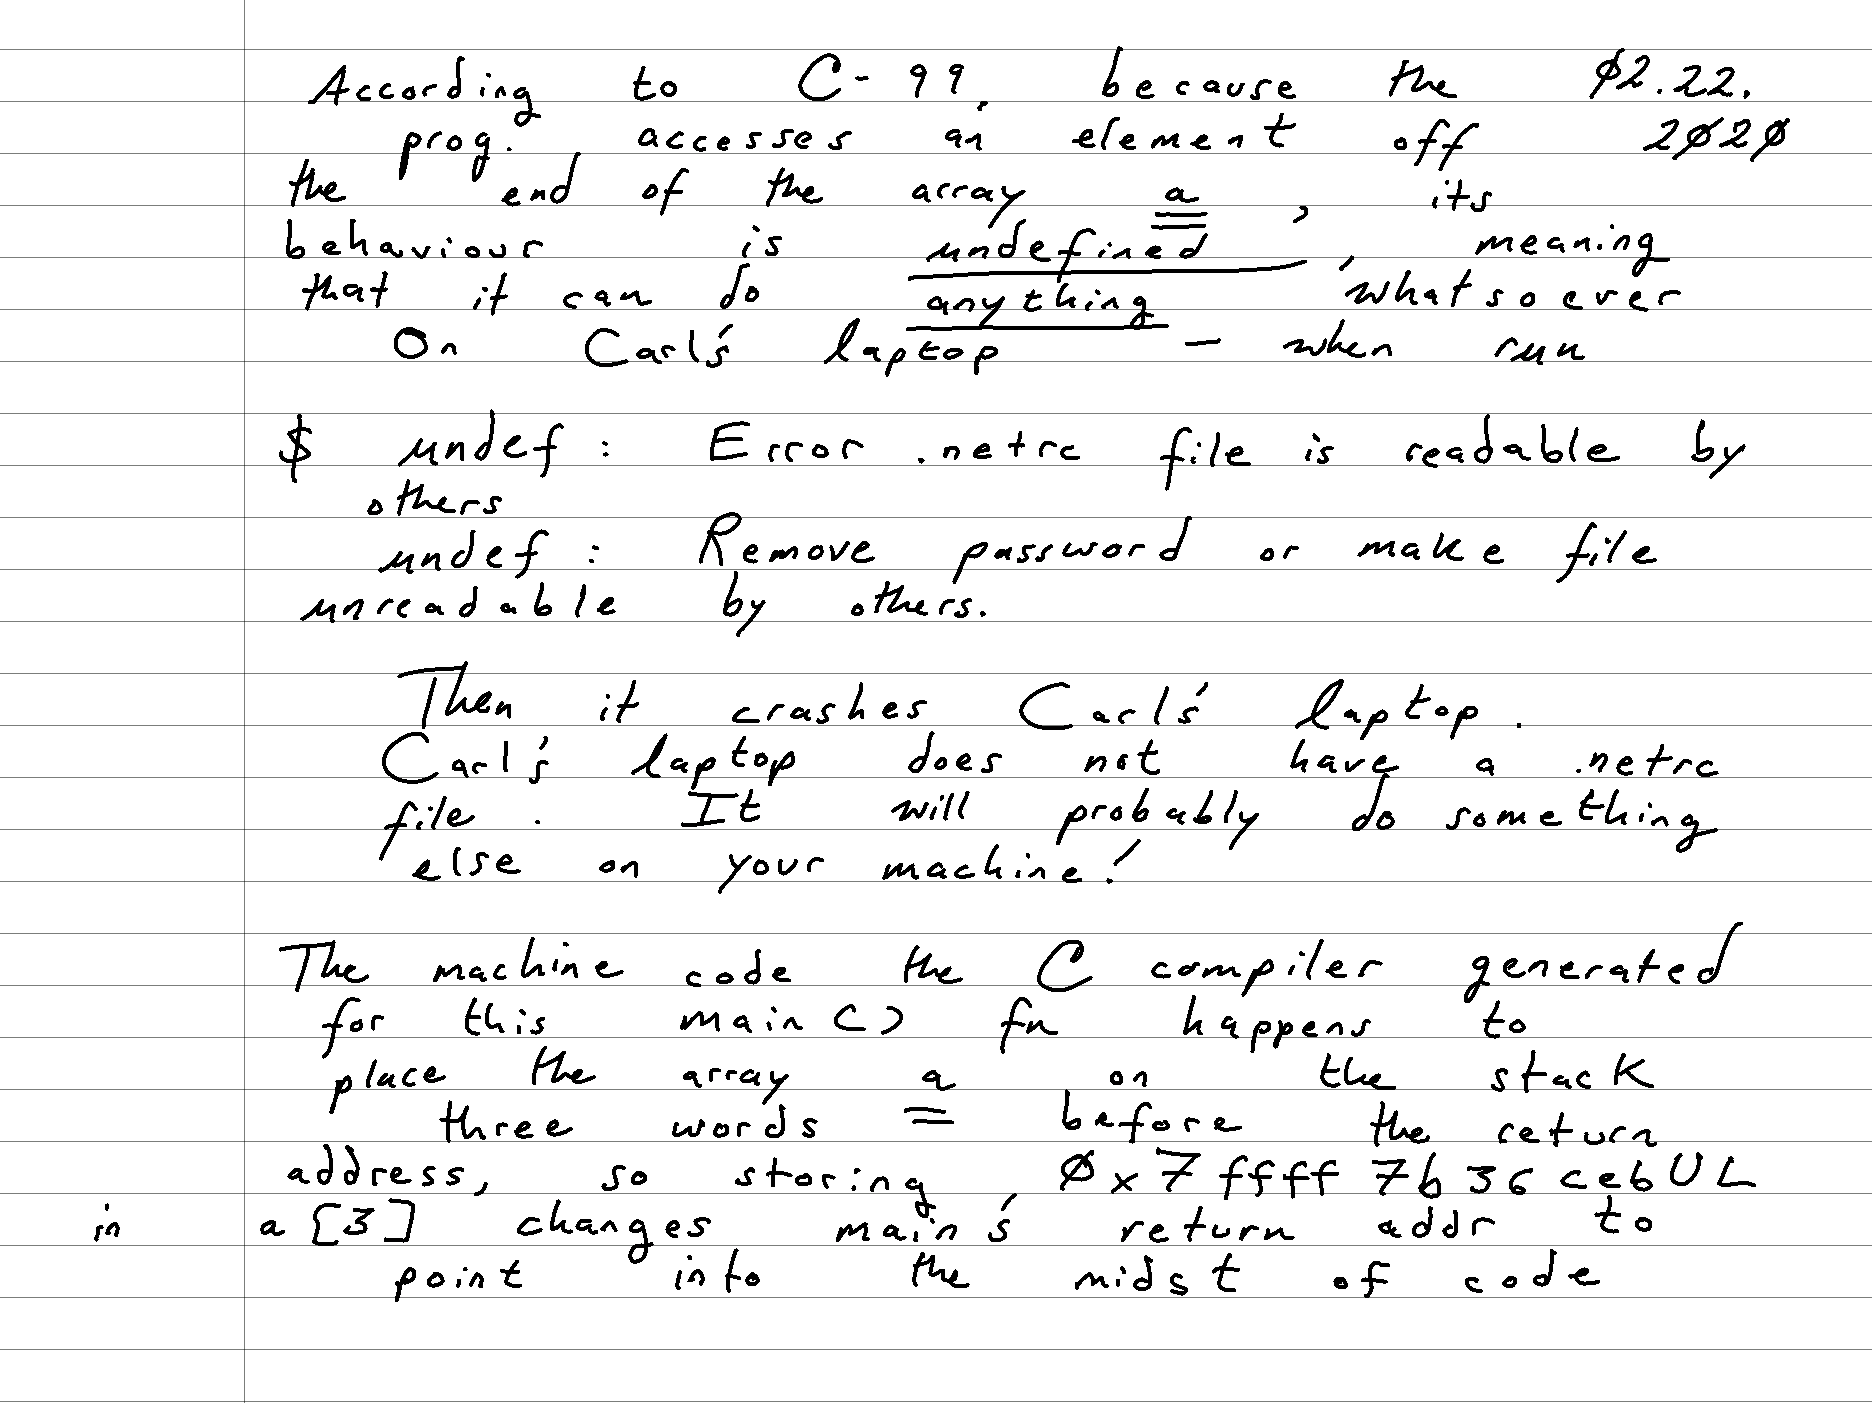 According to C-99, because the 02.22.
prog. accesses an element off 2020
the end of the array a, its
behaviour is undefined, meaning
that it can do anything whatsoever
On Carl's laptop - when run
$ undef: Error .netrc file is readable by
others
undef: Remove password or make file
unreadable by others.
Then it crashes Carl's laptop.
Carl's laptop does not have a .netrc
file. It will probably do something
else on your machine!
The machine code the C compiler generated
for this main() fn happens to
place the array a on the stack
three words before the return
address, so storing, 0x7ffff7b36cebUL
in a[3] changes main's return addr to
point into the midst of code